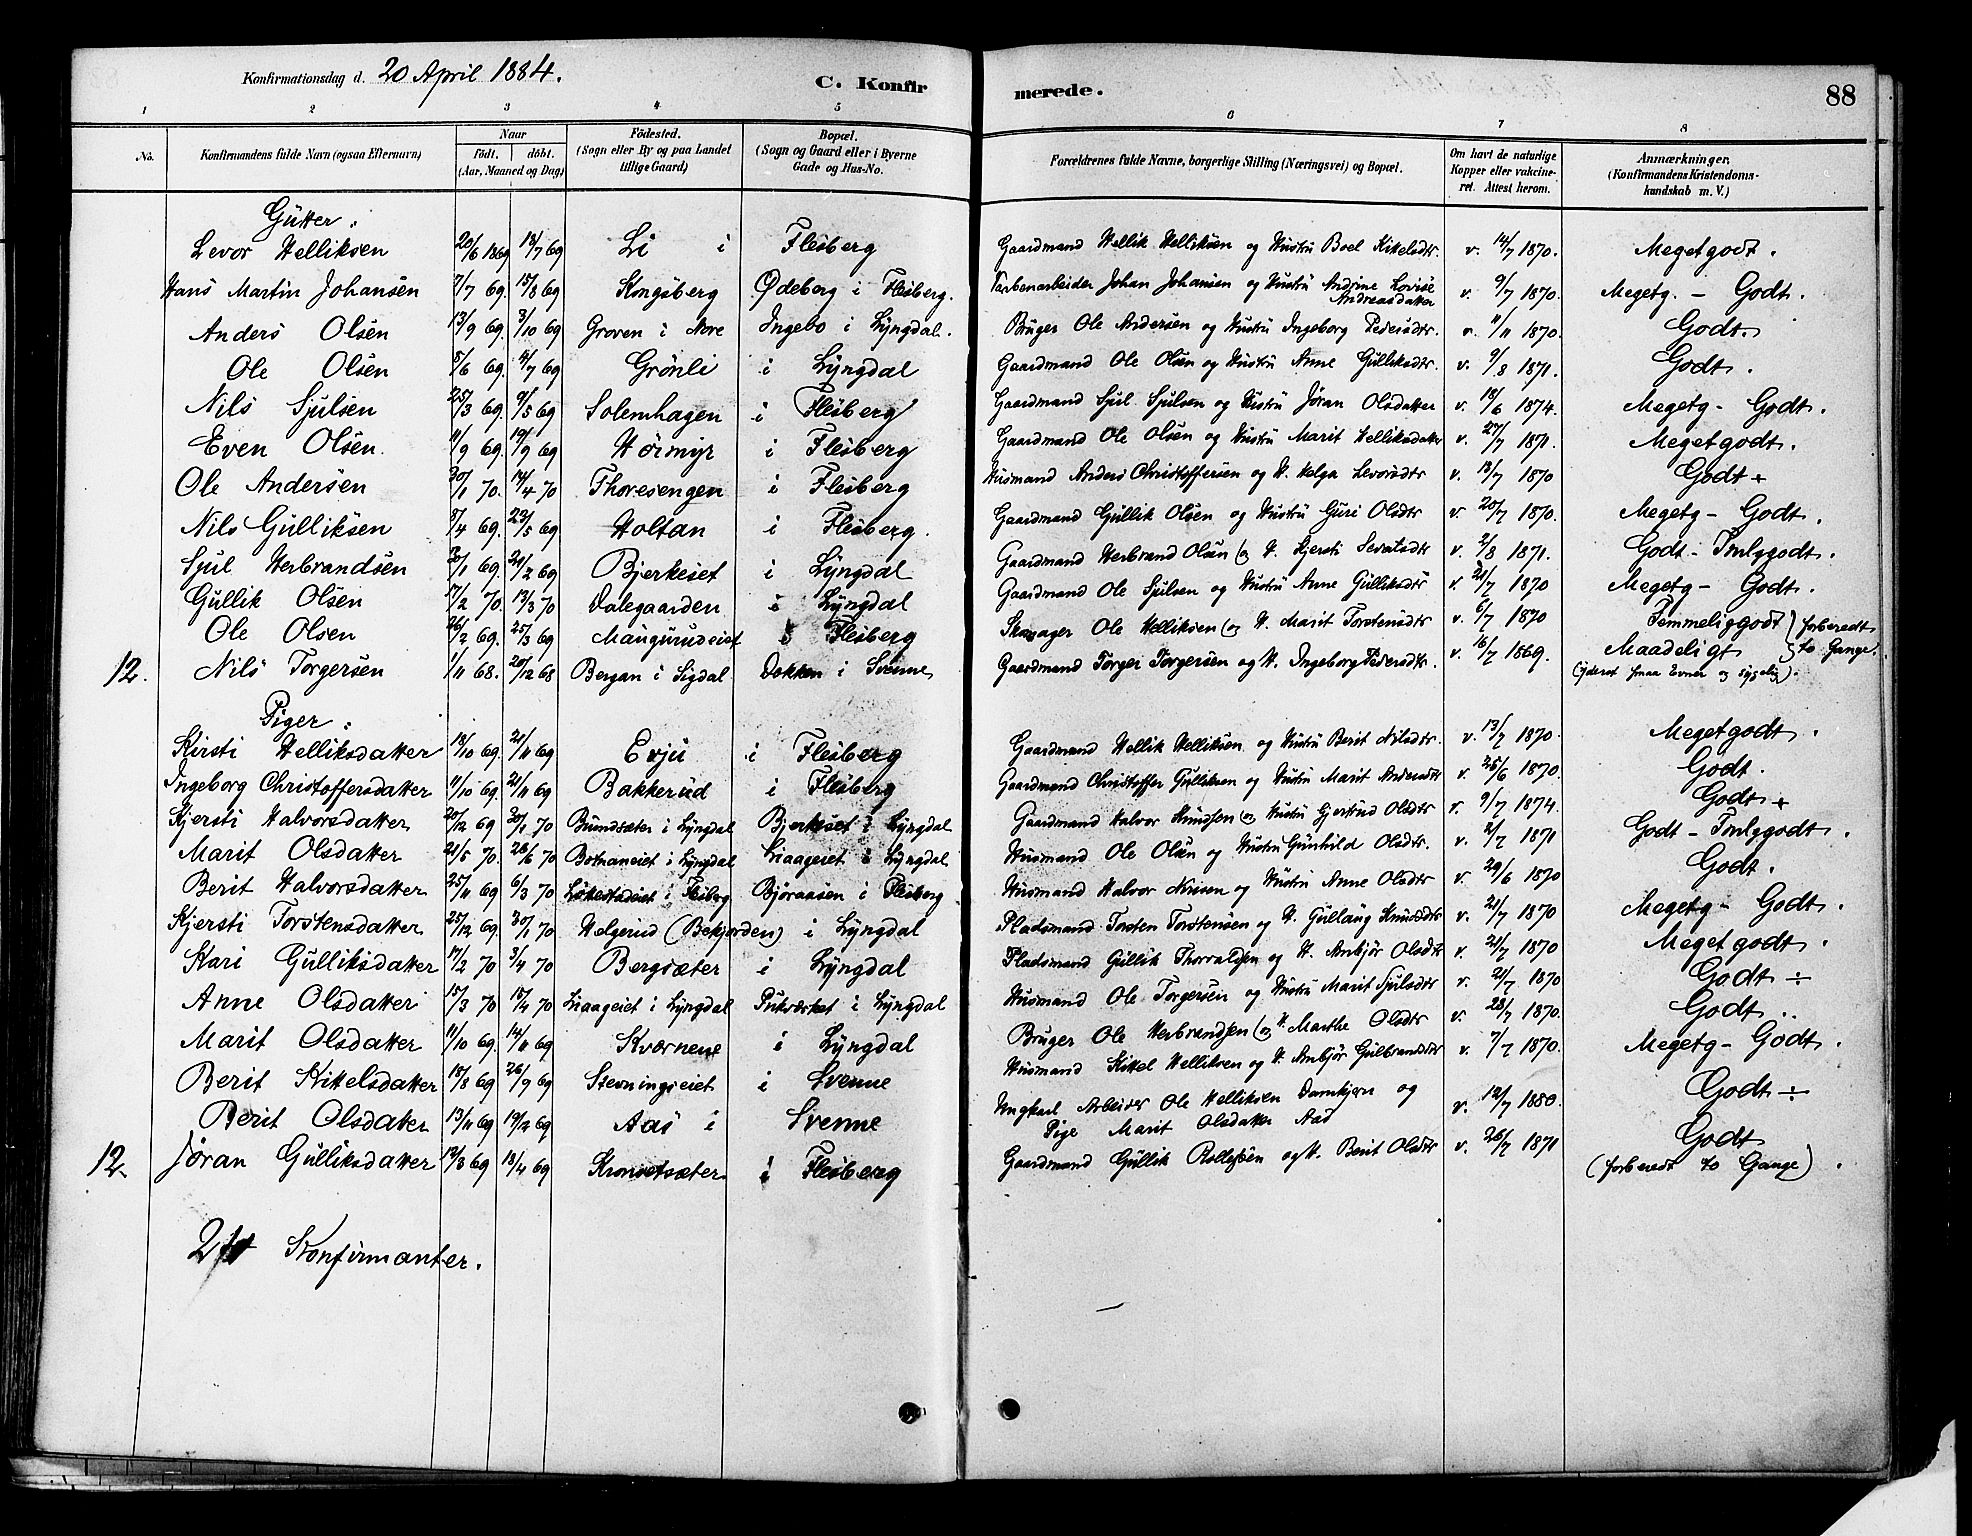 Konfirmationsdag d. 20 April 1884. C. Konfir merede. 88
1 2 3 4 5 6 7 8
No. Konfirmandens fulde Navn (ogsaa Efternavn) Naar født. døbt. (Aar, Maaned og Dag) Fødested. (Sogn eller By og paa Landet tillige Gaard) Bopæl. (Sogn og Gaard eller i Byerne Gade og Hus-No. Forældrenes fulde Navne, borgerlige Stilling (Næringsvei) og Bopæl. Om havt de naturlige Kopper eller vakcineret. Attest herom. Anmærkninger. (Konfirmandens Kristendomskundskab m. V.)
Gutter:
Levor Helliksen 20/6 1869 18/7 69 Li i Flesberg Gaardmand Hellik Helliksen og Hustru Boel Kittelsdtr v. 14/7 1870. Megetgodt.
Hans Martin Johansen 7/7 69. 15/8 69 Kongsberg Ødeberg i Flesberg. Johan Johansen og Hustru Andrine Lovise Andreasdatter v. 9/7 1870. Megetg. - Godt.
Anders Olsen 13/9 69. 3/10 69 Groven i Nore Ingebo i Lyngdal. Bruger Ole Andersen og Hustru Ingeborg Pedersdtr. v. 11/11 1870. Godt.
Ole Olsen 5/6 69. 4/7 69 Grønli i Lyngdal Gaardmand Ole Olsen og Hustru Anne Gulliksdtr v. 9/8 1871. Godt.
Nils Sjulsen 25/3 69. 9/5 69 Solemhagen i Flesberg Gaardmand Sjul Sjulsen og Hustru Jøran Olsdatter v. 18/6 1874. Megetg - Godt.
Even Olsen 11/9 69. 19/9 69 Hørmyr i Flesberg Gaardmand Ole Olsen og Hustru Marit Helliksdatter v. 27/7 1871. Megetgodt.
Ole Andersen 30/1 70. 14/4 70 Thoresengen i Flesberg Husmand Anders Christoffersen og H. Helga Levorsdtr v. 13/7 1870 Godt +
Nils Gulliksen 8/4 69. 23/5 69 Holtan i Flesberg. Gaardmand Gullik Olsen og Hustru Guri Olsdtr v. 20/7 1870. Megetg - Godt.
Sjul Herbrandsen 30/1 69. 21/2 69 Bjerkeset i Lyngdal Gaardmand Herbrand Olsen og H. Kjersti v. 2/8 1871. Godt - Tmlyggodt.
Gullik Olsen 17/2 70. 13/3 70 Dalegaarden i Lyngdal Gaardmand Ole Sjulsen og Hustru Anne Gulliksdtr v. 21/7 1870 Megetg - Godt.
Ole Olsen 26/2 69. 25/3 69 Maugerudeiet i Flesberg Ole Helliksen og H. Marit Torstensdtr v. 6/7 1870 Temmeliggodt } forberedt
12. Nils Torgersen 1/11 68. 20/12 68 Bergan i Sigdal Dokken i Svenne Gaardmand Torger Torgersen og H. Ingeborg Pedersdtr. v. 16/7 1869. Maadeligt } to Gange.
(yderst smaa Evner og sygelig).
Piger:
Kirsti Helliksdatter 18/10 69. 21/11 69 Evju i Flesberg Gaardmand Hellik Helliksen og Hustru Berit Nilsdtr. v. 13/7 1870. Megetgodt.
Ingeborg Christoffersdatter 11/10 69. 21/11 69 Bakkerud i Flesberg Gaardmand Christoffer Gulliksen og Hustru Marit Andersdtr v. 25/6 1870. Godt.
Kjersti Halvorsdatter 20/12 69 30/1 70 i Lyngdal Bjerkeset i Lyngdal Gaardmand Halvor Knudsen og Hustru Gjertrud Olsdtr v. 9/7 1874. Godt +
Marit Olsdatter 21/5 70. 26/6 70 Botnaneiet i Lyngdal Liaageiet i Lyngdal Husmand Ole Olsen og Hustru Gunhild Olsdtr. v. 2/7 1871 Godt - Tmlyggodt.
Berit Halvorsdatter 25/11 69 6/3 70 i Flesberg Bjøraasen i Flesberg Husmand Halvor Nirisen og Hustru Anne Olsdtr v. 29/6 1870 Godt.
Kjersti Torstensdatter 25/12 69. 30/1 70 Helgerud (Bekjorden) i Lyngdal Pladsmand Torsten Torstensen og H. Gullaug Knudsdtr v. 21/7 1870 Megetg - Godt.
Kari Gulliksdatter 17/2 70 3/4 70 Bergsæter i Lyngdal Pladsmand Gullik Thorvaldsen og H. Anbjør Olsdtr v. 21/7 1870 Megetgodt.
Anne Olsdatter 15/3 70 18/4 70 Liaageiet i Lyngdal Pukværket i Lyngdal Husmand Ole Torgersen og Hustru Marit Sjulsdtr v. 21/7 1870 Godt ÷
Marit Olsdatter 11/10 69. 14/11 69 Kværnene i Lyngdal Bruger Ole Herbrandsen og H. Marthe Olsdtr v. 28/7 1870. Godt ..
Berit Kittelsdatter 18/8 69 26/9 69 Stevningseiet i Svenne Husmand Kittel Helliksen og H. Anbjør Gulbrandsdtr v. 7/7 1870. Megetg - Godt.
Berit Olsdatter 13/11 69 19/12 69 Aas i Svenne Ungkarl Arbeider Ole Helliksen Damkjern og Pige Marit Olsdatter Aas v. 12/7 1880. Godt ÷
12. Jøran Gulliksdatter 12/3 69 18/4 69 Kronsetsæter i Flesberg Gaardmand Gullik Rollefsen og H. Berit Olsdtr v. 26/7 1871 Godt
(forberedt to Gange).
24 Konfirmanter.